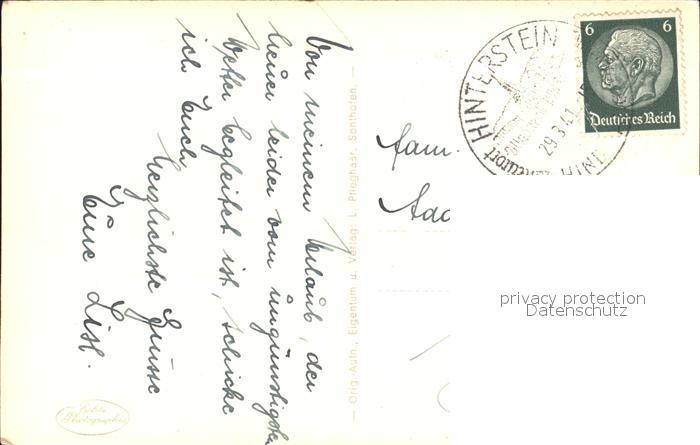 Von meinem Urlaub, der
heuer leider vom ungünstigsten
Wetter begleitet ist, schicke
ich Euch
herzlichste Grüsse
Eure Lisl.
Echte
Photographie
Orig.-Aufn., Eigentum u. Verlag: L. Prieghasr, Sonthofen.
HINTERSTEIN
29.3.41
6 6
Deutsches Reich
Fam.
privacy protection
Datenschutz